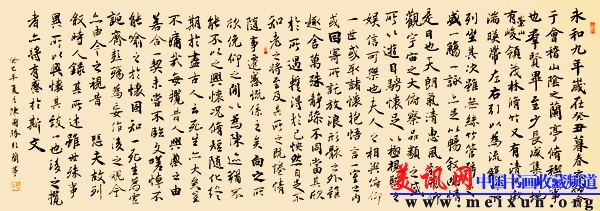 永和九年歲在癸丑暮春之初會
于會稽山陰之蘭亭脩稧事
也群賢畢至少長咸集此地
有崇山峻領茂林脩竹又有清流激
湍暎帶左右引以為流觴曲水
列坐其次雖無絲竹管弦之
盛一觴一詠亦足以暢敘幽情
是日也天朗氣清惠風和暢仰
觀宇宙之大俯察品類之盛
所以遊目騁懷足以極視聽之
娛信可樂也夫人之相與俯仰
一世或取諸懷抱悟言一室之內
或因寄所託放浪形骸之外雖
趣舍萬殊靜躁不同當其欣
於所遇暫得於己快然自足不
知老之將至及其所之既惓情
隨事遷感慨係之矣向之所
欣俛仰之間以為陳迹猶不
能不以之興懷況脩短隨化終
期於盡古人云死生亦大矣豈
不痛哉每攬昔人興感之由
若合一契未嘗不臨文嗟悼不
能喻之於懷固知一死生為虛
誕齊彭殤為妄作後之視今
亦由今之視昔悲夫故列
敘時人錄其所述雖世殊事
異所以興懷其致一也後之攬
者亦將有感於斯文
美讯网 中国书画收藏频道
www.meixun.org